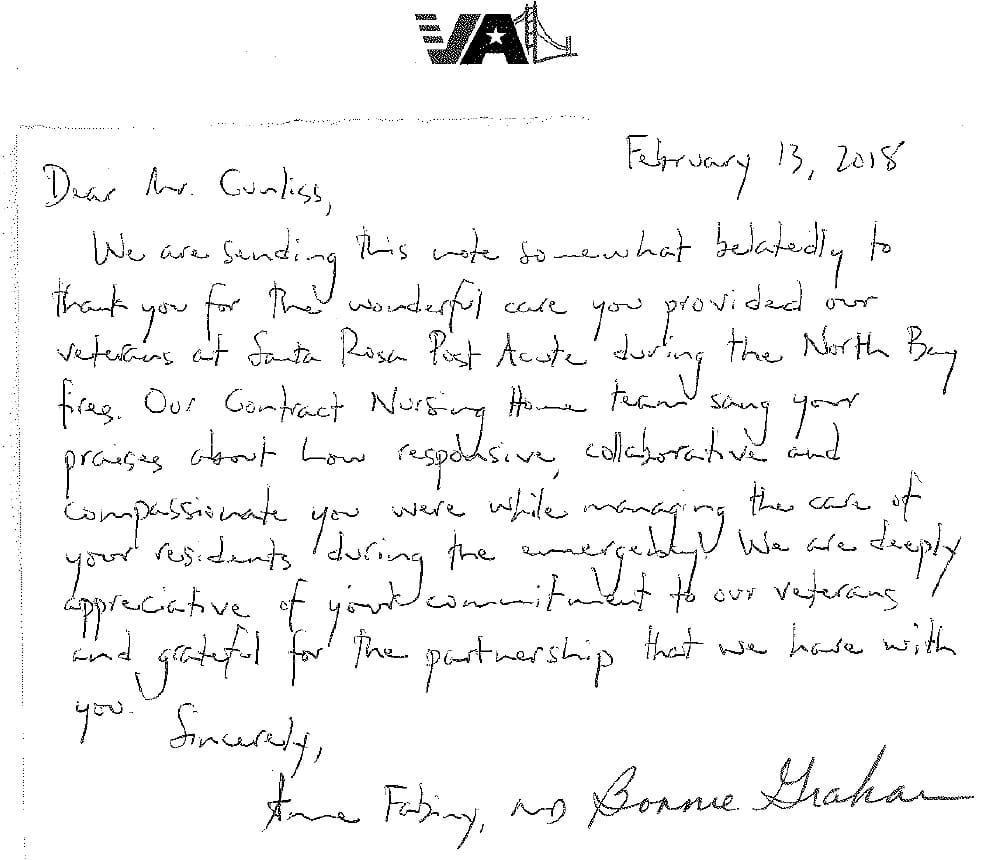 VA
February 13, 2018
Dear Mr. Cunliss,
We are sending this note somewhat belatedly to
thank you for the wonderful care you provided our
veterans at Santa Rosa Post Acute during the North Bay
fires. Our Contract Nursing Home team sang your
praises about how responsive, collaborative and
compassionate you were while managing the care of
your residents during the emergency. We are deeply
appreciative of your commitment to our veterans
and grateful for the partnership that we have with
you.
Sincerely,
Anne Fabiny, MD Bonnie Graham